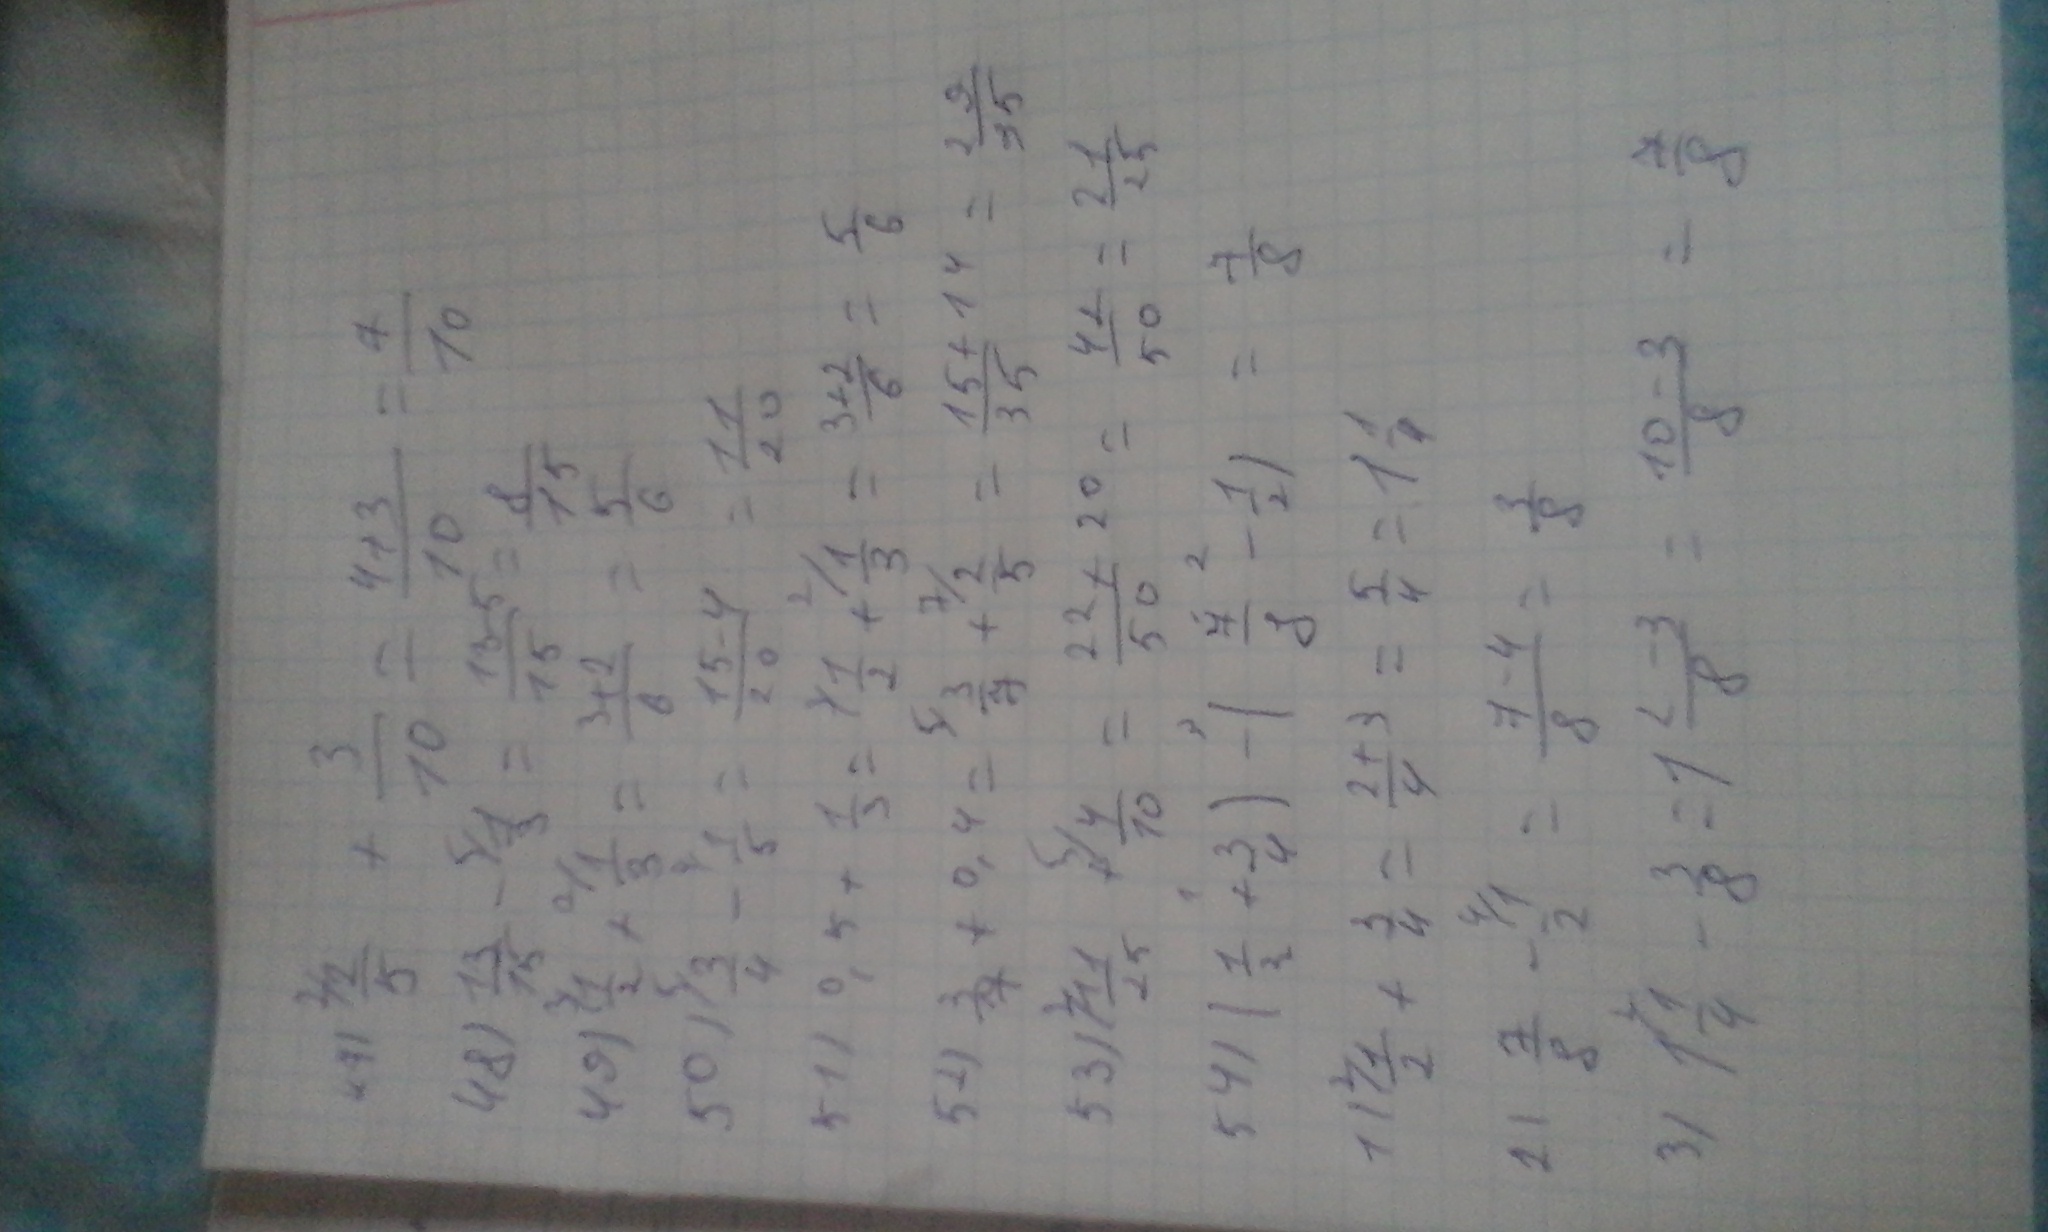 47) 2/2/5 + 3/10 = 4+3/10 = 7/10
48) 13/15 - 5/1/3 = 13-5/15 = 8/15
49) 3/1/2 + 2/1/3 = 3+2/6 = 5/6
50) 5/3/4 - 4/1/5 = 15-4/20 = 11/20
51) 0,5 + 1/3 = 3/1/2 + 2/1/3 = 3+2/6 = 5/6
52) 3/7 + 0,4 = 5/3/7 + 7/2/5 = 15+14/35 = 29/35
53) 2/11/25 + 5/4/10 = 22+20/50 = 42/50 = 21/25
54) (1/2 + 3/4) - (7/8 - 1/2) = 7/8
1) 2/1/2 + 3/4 = 2+3/4 = 5/4 = 1 1/4
2) 7/8 - 4/1/2 = 7-4/8 = 3/8
3) 1 2/1/4 - 3/8 = 1 2-3/8 = 10-3/8 = 7/8